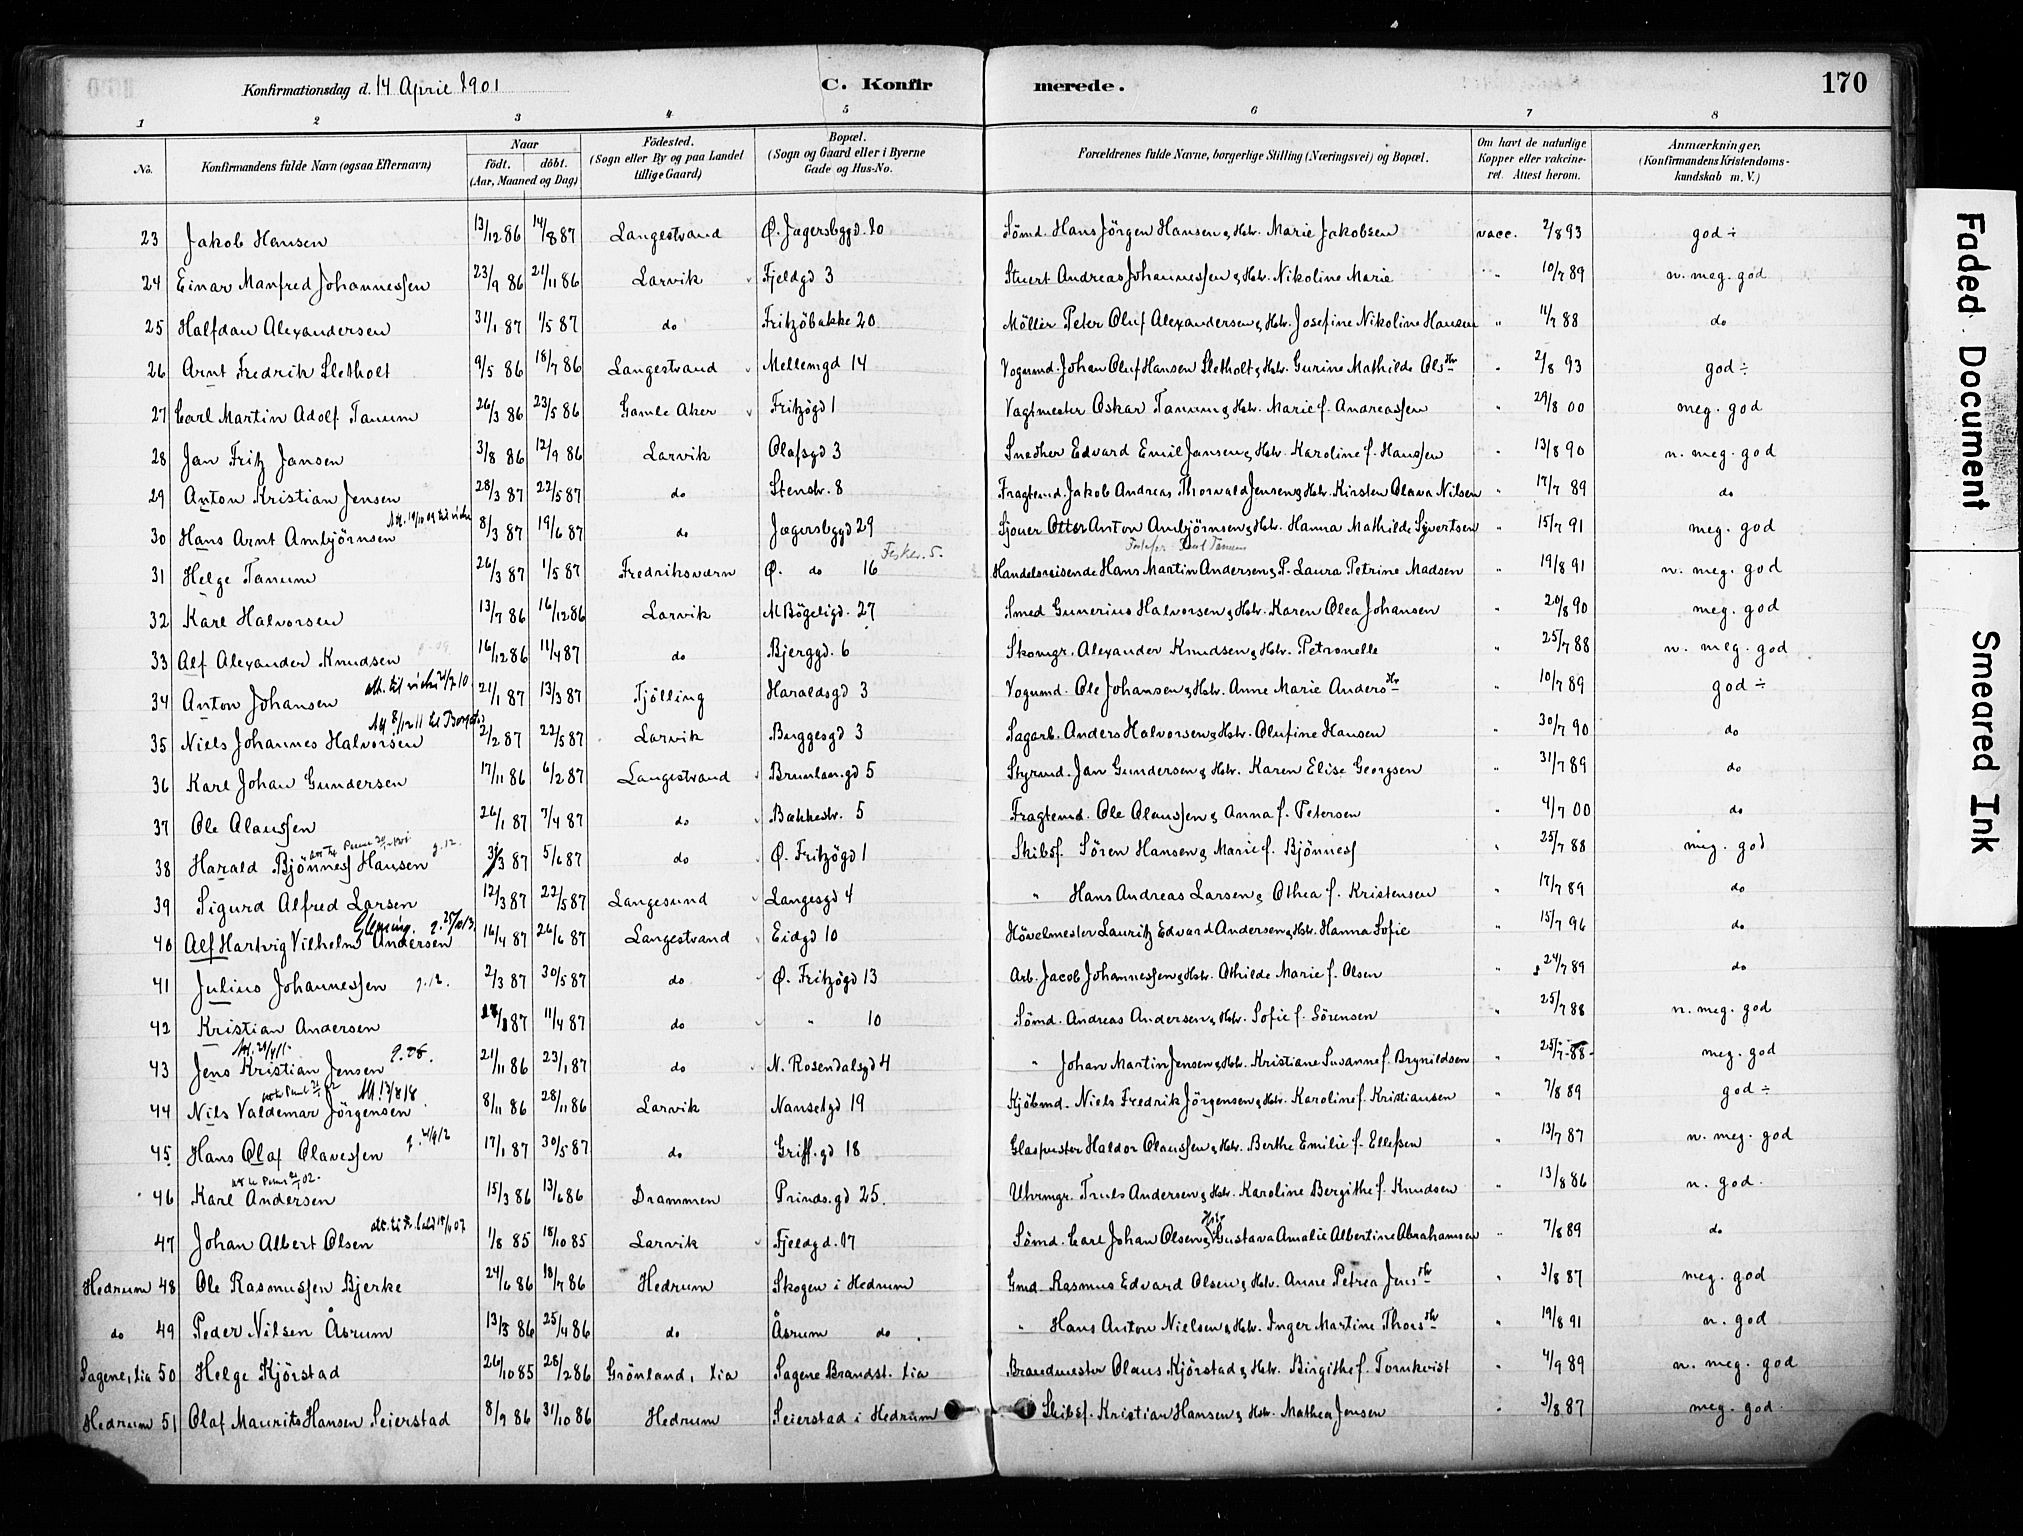 Konfirmationsdag d. 14 April 1901 C. Konfirmerede. 170
1 2 3 4 5 6 7 8
No. Konfirmandens fulde Navn (ogsaa Efternavn) Naar födt. döbt. (Aar, Maaned og Dag) Födested. (Sogn eller By og paa Landet tillige Gaard) Bopæl. (Sogn og Gaard eller i Byerne Gade og Hus-No. Forældrenes fulde Navne, borgerlige Stilling (Næringsvei) og Bopæl. Om havt de naturlige Kopper eller vakcineret. Attest herom. Anmærkninger. (Konfirmandens Kristendomskundskab m. V.)
23 Jakob Hansen 13/12 86 14/8 87 Langestrand Ø. Jagersbggd. 20 Sömd. Hans Jörgen Hansen & Hstr. Marie Jakobsen vacc. 2/8 93 god ÷
24 Einar Manfred Johannessen 23/9 86 21/11 86 Larvik Fjeldgd 3 Stuert Andreas Johannessen & Hstr. Nikoline Marie " 10/7 89 n. meg. god
25 Halfdan Alexandersen 31/1 87 1/5 87 do Fritzöbakke 20 Möller Peter Oluf Alexandersen & Hstr. Josefine Nikoline Hansen " 11/7 88 do
26 Arnt Fredrik Sletholt 9/5 86 18/7 86 Langestrand Mellemgd 14 Vogumd. Johan Oluf Hansen Sletholt & Hstr. Gurine Mathilde Olsdtr " 2/8 93 god ÷
27 Carl Martin Adolf Tanum 26/3 86 23/5 86 Gamle Aker Fritzögd 1 Vagtmester Oskar Tanum & Hstr. Marie f. Andreassen " 29/8 00 meg. god
28 Jan Fritz Jansen 3/8 86 12/9 86 Larvik Olafsgd 3 Snedker Edvard Emil Jansen & Hstr. Karoline f. Hanssen " 13/8 90 n. meg. god
29 Anton Kristian Jensen 28/3 87 22/5 87 do Stenstr. 8 Fragtemd. Jakob Andreas Thorvald Jensen & Hstr. Kirsten Olava Nilsen " 17/7 89 do
30 Hans Arnt Ambjörnsen 8/3 87 19/6 87 do Jægersbggd 29 Sjouer Otter Anton Ambjörnsen & Hstr. Hanna Mathilde Syvertsen " 15/7 91 meg. god
31 Helge Tanum 26/3 87 1/5 87 Fredriksværn Ø. do 16 Handelsreisende Hans Martin Andersen & P. Laura Petrine Madsen " 19/8 91 n. meg. god
32 Karl Halvorsen 13/7 86 16/12 86 Larvik M Bögeligd. 27 Smed Gunerius Halvorsen & Hstr. Karen Olea Johansen " 20/8 90 meg. god
33 Alf Alexander Knudsen 16/12 86 11/4 87 do Bjerggd. 6 Skomgr. Alexander Knudsen & Hstr. Petronelle " 25/7 88 n. meg. god
34 Anton Johansen 21/1 87 13/3 87 Tjölling Haraldsgd 3 Vogumd. Ole Johansen & Hstr. Anne Marie Andersdtr " 10/7 89 god ÷
35 Niels Johannes Halvorsen 2/2 87 22/5 87 Larvik Buggesgd 3 Sagarb. Anders Halvorsen & Hstr. Olufine Hansen " 30/7 90 do
36 Karl Johan Gundersen 17/11 86 6/2 87 Langestrand Brunlan.gd 5 Styrmd. Jan Gundersen & Hstr. Karen Elise Georgsen " 31/7 89 do
37 Ole Olaussen 26/1 87 7/4 87 do Bakkestr. 5 Fragtemd. Ole Olaussen & Anna f. Petersen " 4/7 00 do
38 Harald Bjönness Hansen 3/3 87 5/6 87 do Ø. Fritzögd 1 Skibsf. Sören Hansen & Marie f. Bjönness " 25/7 88 meg. god
39 Sigurd Alfred Larsen 12/3 87 22/5 87 Langesund Langesgd 4 " Hans Andreas Larsen & Othea f. Kristensen " 17/7 89 do
40 Alf Hartvig Vilhelm Andersen 16/4 87 26/6 87 Langestrand Eidgd 10 Hövelmester Lauritz Edvard Andersen & Hstr. Hanna Sofie " 15/7 96 do
41 Julius Johannessen g. 12. 2/3 87 30/5 87 do Ø. Fritzögd 13 Arb. Jacob Johannessen & Hstr. Othilde Marie f. Olsen " 24/7 89 do
42 Kristian Andersen 11/4 87 do " 10 Sömd. Andreas Andersen & Hstr. Sofie f. Sörensen " 25/7 88 n. meg. god
43 Jens Kristian Jensen 21/11 86 23/1 87 do N. Rosendalsgd 4 " Johan Martin Jensen & Hstr. Kristiane Susanne f. Brynildsen 25/7 88 meg. god
44 Nils Valdemar Jörgensen 8/11 86 28/11 86 Larvik Nansetgd 19 Kjöbmd. Niels Fredrik Jörgensen & Hstr. Karoline f. Kristiansen " 7/8 89 god ÷
45 Hans Olaf Olavessen 17/1 87 30/5 87 do Griff.gd 18 Glaspuster Haldor Olaussen & Hstr. Berthe Emilie f. Ellefsen " 13/7 87 n. meg. god
46 Karl Andersen 15/3 86 13/6 86 Drammen Prinds.gd 25. Uhrmgr. Truls Andersen & Hstr. Karoline Bergithe f. Knudsen " 13/8 86 n. god.
47 Johan Albert Olsen 1/8 85 18/10 85 Larvik Fjeldgd. 17 Sömd. Carl Johan Olsen & Hstr. Gustava Amalie Albertine Abrahamsen " 7/8 89 do
Hedrum 48 Ole Rasmussen Bjerke 24/6 86 18/7 86 Hedrum Skogen i Hedrum Gmd. Rasmus Edvard Olsen & Hstr. Anne Petrea Jensdtr " 3/8 87 meg. god
do 49 Peder Nilsen Åsrum 13/3 86 25/4 86 do Åsrum do " Hans Anton Nielsen & Hstr. Inger Martine Thorsdtr " 19/8 91 n. god
Sagene, Xia 50 Helge Kjörstad 26/10 85 28/2 86 Grönland, Xia Sagene Brandst. Xia Brandmester Olaus Kjörstad & Hstr. Birgithe f. Tornkvist " 4/9 89 n. meg. god
Hedrum 51 Olaf Maurits Hansen Seierstad 8/9 86 31/10 86 Hedrum Seierstad i Hedrum Skibsf. Kristian Hansen & Hstr. Mathea Jensen " 3/8 87 meg. god.
Faded Document
Smeared Ink